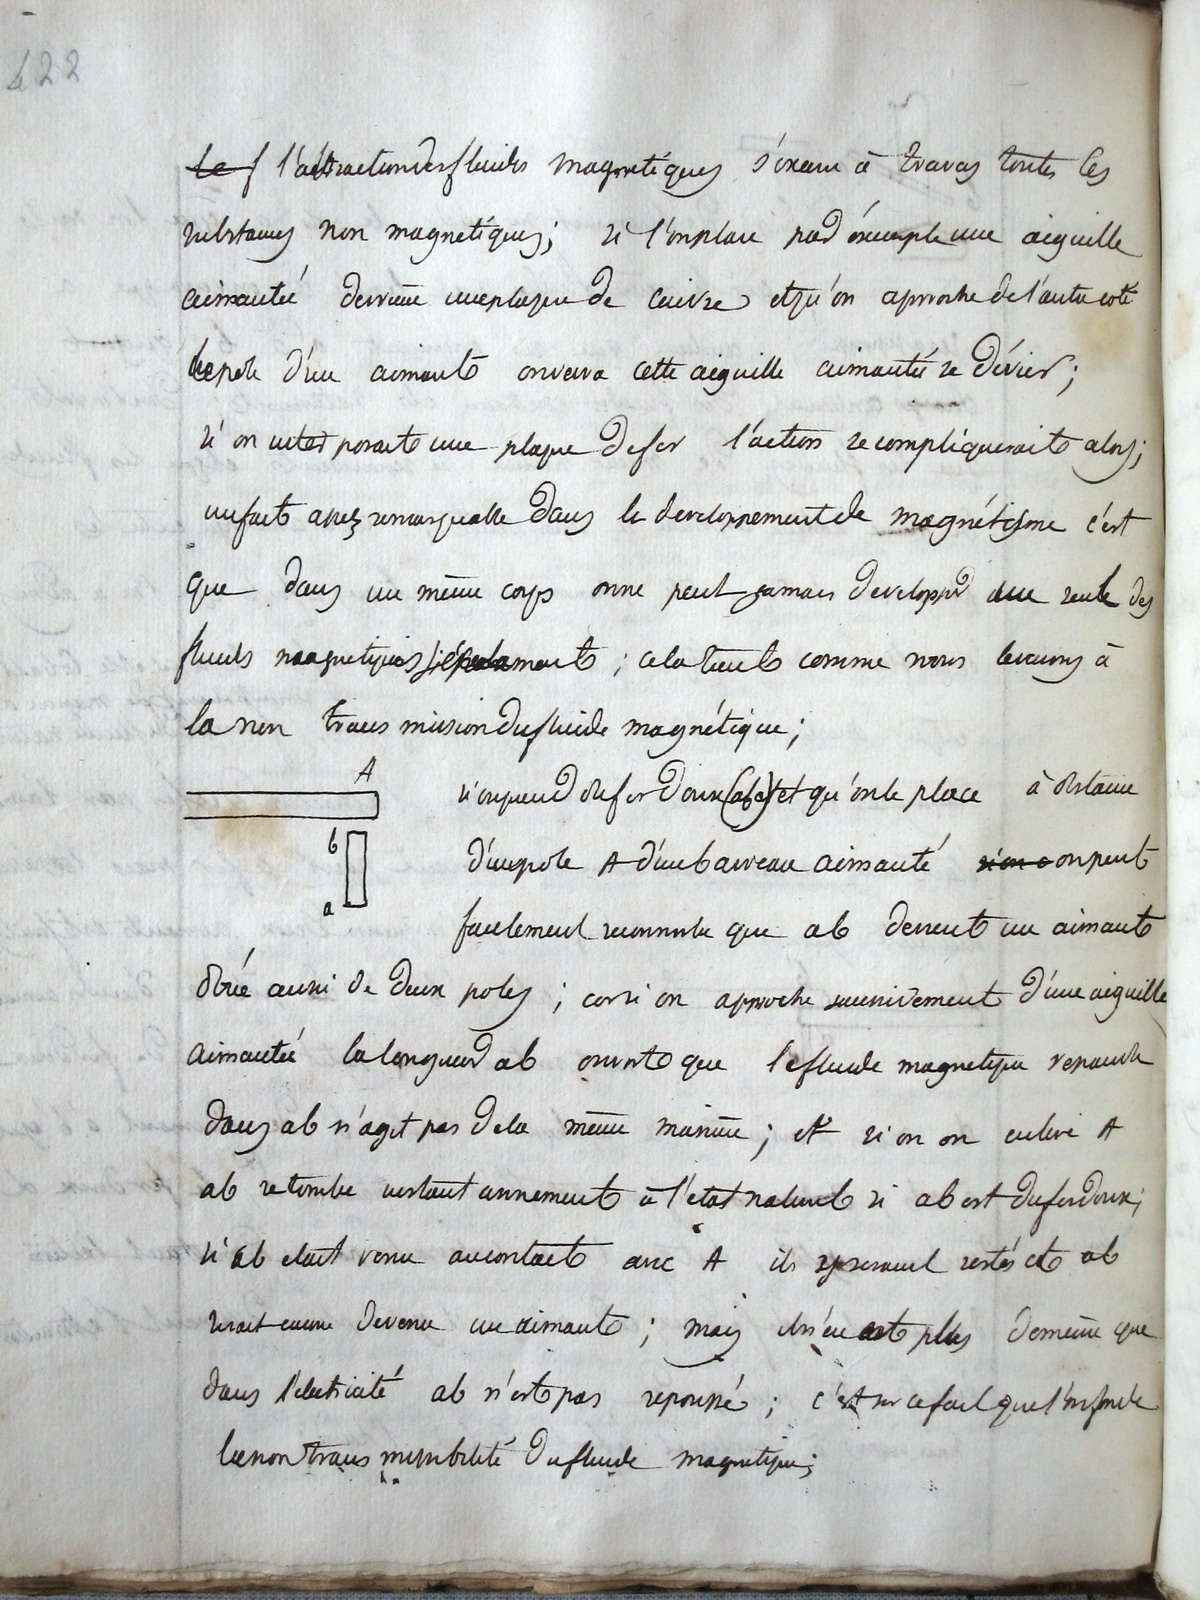 422
Le f l'attraction des fluides magnetiques s'exerce à travers toutes les
substances non magnetiques; si l'on place par éxemple une aiguille
aimantée derriere une plaque de cuivre et qu'on aproche de l'autre coté
le pole d'un aimant on verra cette aiguille aimantée se dévier;
si on interposait une plaque de fer l'action se compliquerait alors;
un fait assez remarquable dans le developpement de magnétisme c'est
que dans un même corps on ne peut jamais developper une seule des
fluids magnetiques séparament; cela tient comme nous le verrons à
la non transmission du fluide magnétique;
A
b
a
si on prend du fer doux (ab) et qu'on le place à distance
d'un pole A d'un barreau aimanté si on a on peut
facilement reconnaitre que ab devient un aimant
doué aussi de deux poles; car si on approche successivement d'une aiguille
aimantée la longueur ab on voit que le fluide magnetique repandu
dans ab n'agit pas de la même maniere; et si on on enleve A
ab retombe instantannement à l'etat naturel si ab est du fer doux;
si ab etait venu au contact avec A ils y seraient restés et ab
serait encore devenu un aimant; mais il n'en est plus de même que
dans l'electricité ab n'est pas repoussé; c'est sur ce fait que l'on fonde
la non transmissibilité du fluide magnetique;